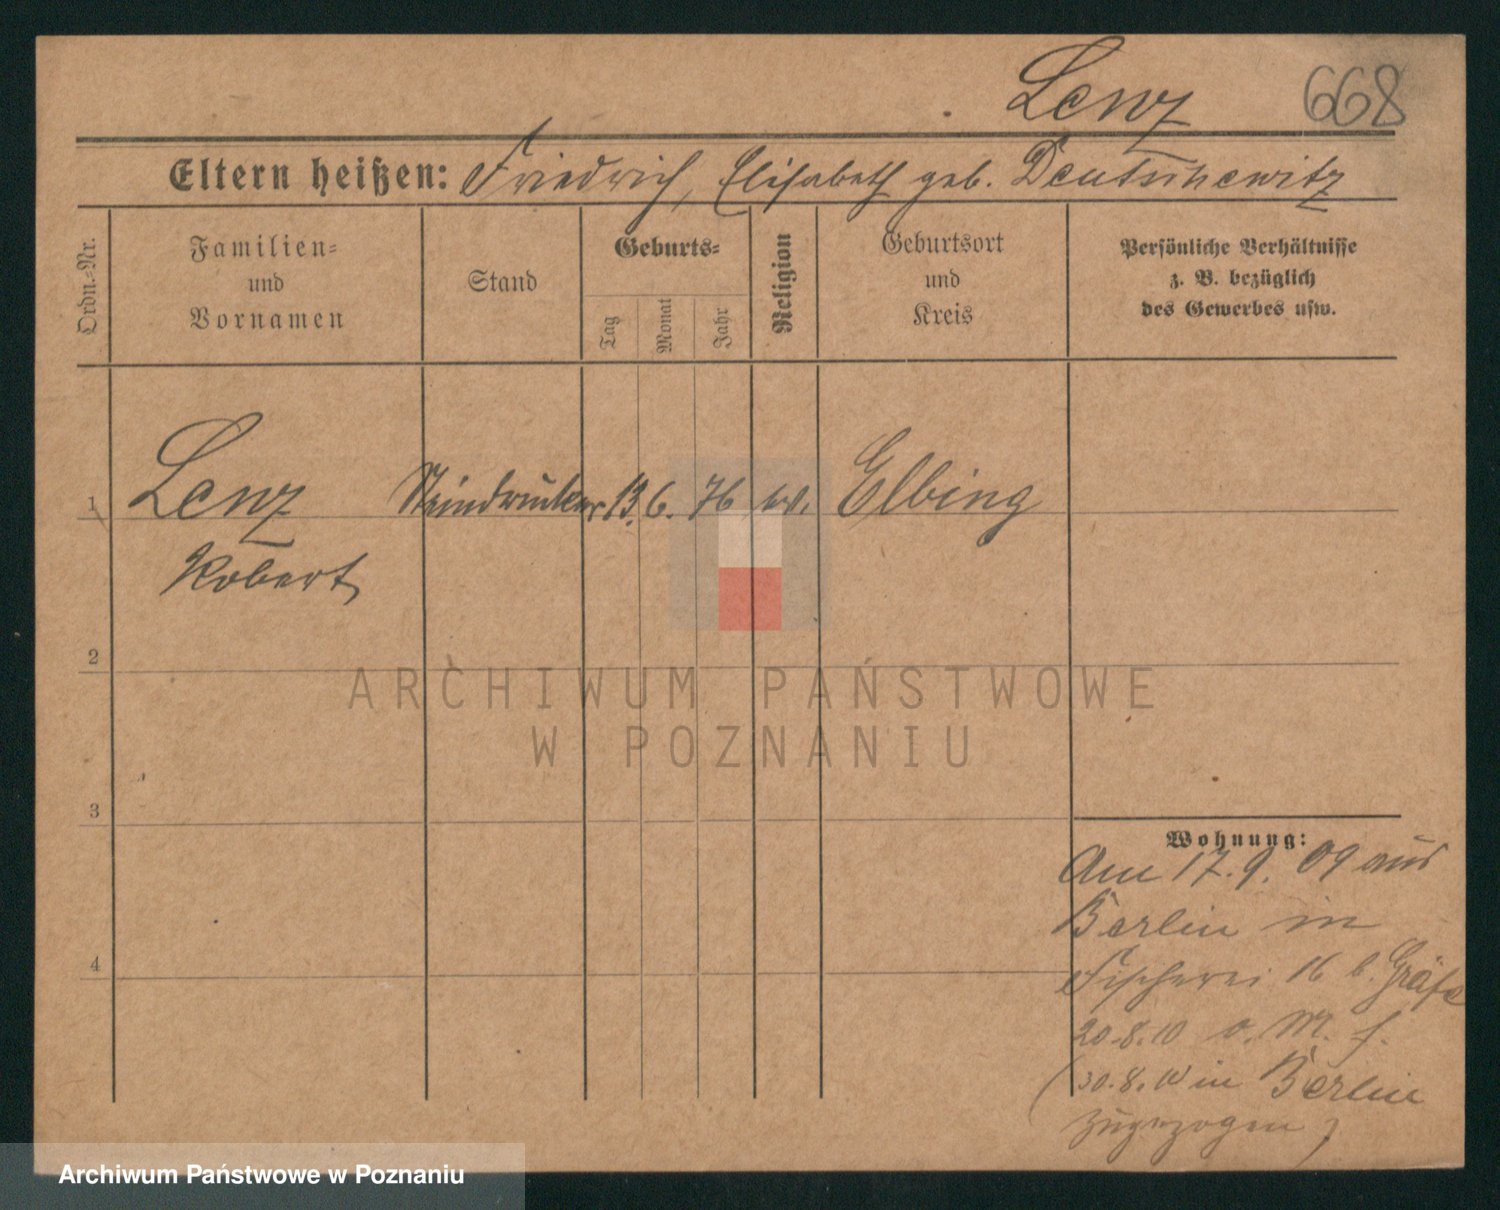 Lenz 668
Eltern heißen: Friedrich, Elisabeth geb. Deutschewitz
Ordn.=Nr.
Familien=
und
Vornamen
Stand
Geburts=
Tag
Monat
Jahr
Religion
Geburtsort
und
Kreis
Persönliche Verhältnisse
z. B. bezüglich
des Gewerbes usw.
1 Lenz Steindrucker 13. 6. 76 ev. Elbing
Robert
2
3
4
Wohnung:
Am 17.9.09 aus
Berlin in
Fischerei 16 b. Gräfe
20.8.10 o. M. f.
(30.8.10 in Berlin
zugezogen)
ARCHIWUM PAŃSTWOWE
W POZNANIU
Archiwum Państwowe w Poznaniu